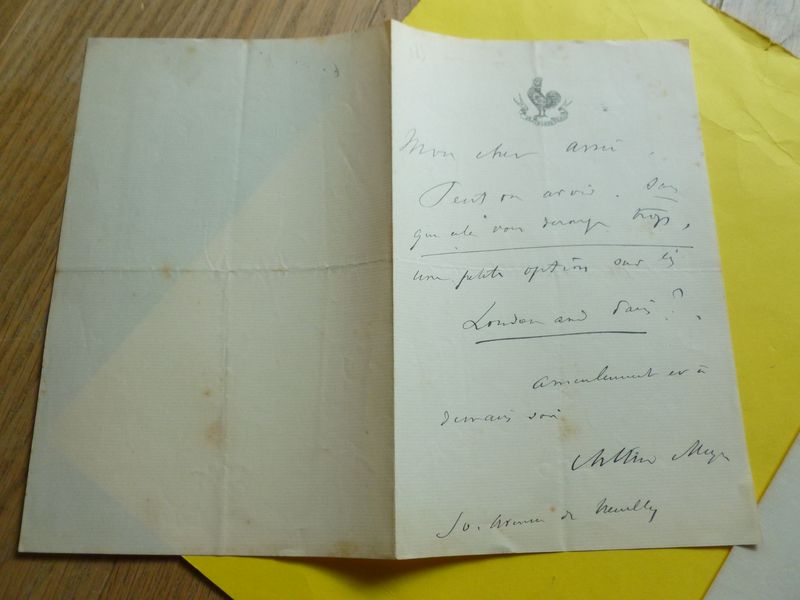 Mon cher ami,
Peut on avoir, sans
que cela vous derange trop,
une petite option sur les
London and Paris ?
amicalement et à
demain soir
Arthur Meyer
50, Avenue de Neuilly